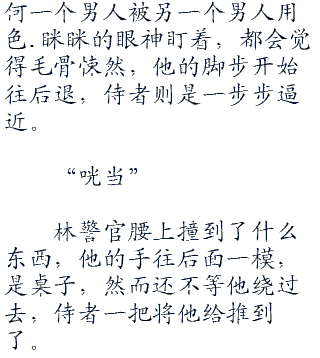 何一个男人被另一个男人用
色.眯眯的眼神盯着，都会觉
得毛骨悚然，他的脚步开始
往后退，侍者则是一步步逼
近。
“咣当”
林警官腰上撞到了什么
东西，他的手往后面一模，
是桌子，然而还不等他绕过
去，侍者一把将他给推到
了。